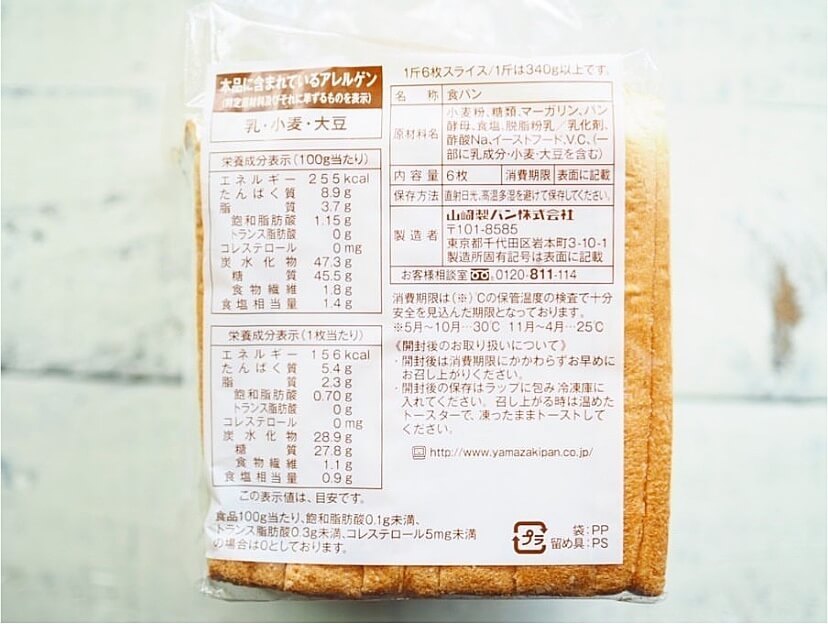 本品に含まれているアレルゲン
(特定原材料及びそれに準ずるものを表示)
乳・小麦・大豆
栄養成分表示(100g当たり)
エネルギー 255kcal
たんぱく質 8.9g
脂質 3.7g
飽和脂肪酸 1.15g
トランス脂肪酸 0g
コレステロール 0mg
炭水化物 47.3g
糖質 45.5g
食物繊維 1.8g
食塩相当量 1.4g
栄養成分表示(1枚当たり)
エネルギー 156kcal
たんぱく質 5.4g
脂質 2.3g
飽和脂肪酸 0.70g
トランス脂肪酸 0g
コレステロール 0mg
炭水化物 28.9g
糖質 27.8g
食物繊維 1.1g
食塩相当量 0.9g
この表示値は、目安です。
食品100g当たり、飽和脂肪酸0.1g未満、
トランス脂肪酸0.3g未満、コレステロール5mg未満
の場合は0としております。
1斤6枚スライス/1斤は340g以上です。
名称 食パン
原材料名 小麦粉、糖類、マーガリン、パン
酵母、食塩、脱脂粉乳/乳化剤、
酢酸Na、イーストフード、V.C、(一
部に乳成分・小麦・大豆を含む)
内容量 6枚 消費期限 表面に記載
保存方法 直射日光、高温多湿を避けて保存してください。
製造者 山崎製パン株式会社
〒101-8585
東京都千代田区岩本町3-10-1
製造所固有記号は表面に記載
お客様相談室 0120-811-114
消費期限は(※)℃の保管温度の検査で十分
安全を見込んだ期限となっております。
※5月〜10月…30℃ 11月〜4月…25℃
《開封後のお取り扱いについて》
・開封後は消費期限にかかわらずお早めに
お召し上がりください。
・開封後の保存はラップに包み冷凍庫に
入れてください。召し上がる時は温めた
トースターで、凍ったままトーストして
ください。
http://www.yamazakipan.co.jp/
プラ
袋:PP
留め具:PS